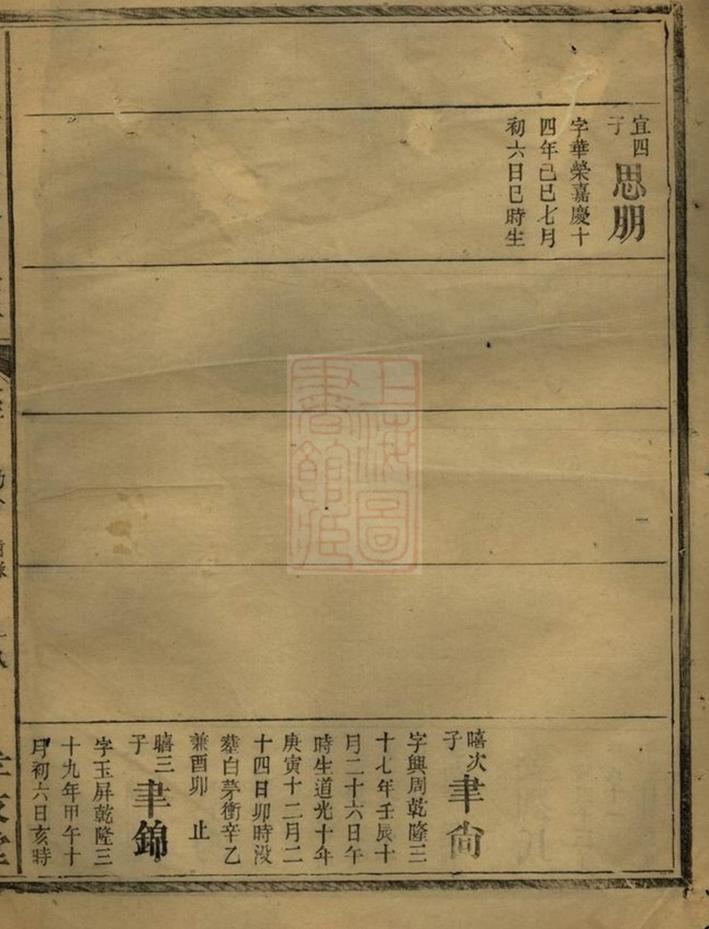 宜四子 思朋
字華榮嘉慶十
四年己巳七月
初六日巳時生
曦次子 聿尙
字興周乾隆三
十七年壬辰十
月二十六日午
時生道光十年
庚寅十二月二
十四日卯時没
塟白茅衝辛乙
兼酉卯止
曦三子 聿錦
字玉屏乾隆三
十九年甲午十
月初六日亥時
上海圖書館藏